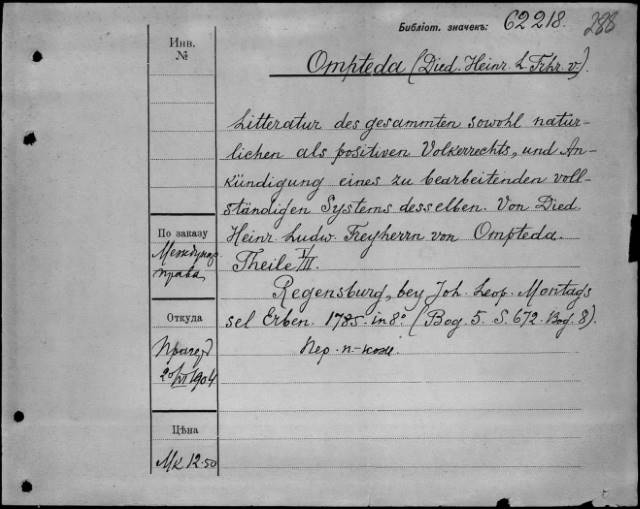 Библіот. значекъ: 62218. 288
Инв. №
Ompteda (Died. Heinr. L Frhr. v.).
Litteratur des gesammten sowohl natur-
lichen als positiven Volkerrechts, und An-
kündigung eines zu bearbeitenden voll-
ständigen Systems desselben. Von Died.
Heinr. Ludw. Freyherrn von Ompteda.
Theile I/II.
Regensburg, bey Joh. Leop. Montags
sel Erben. 1785. in 8º. (Bog. 5. S. 672. Bog. 8).
Пер. п-кож.
По заказу
Междунар.
права
Откуда
20/VI 1904
Цѣна
Mk 12.50